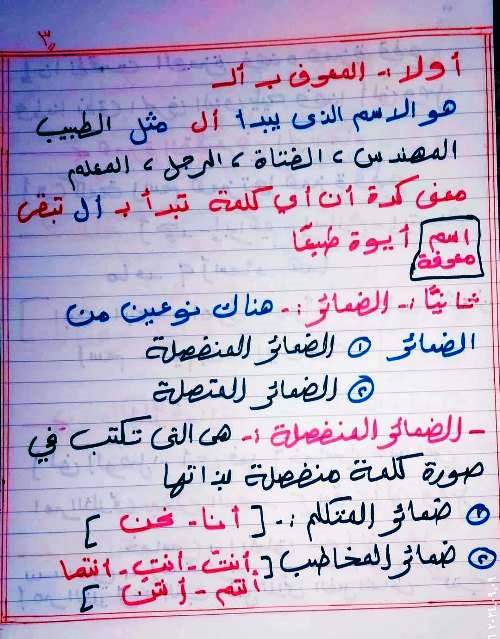 ٣
أولا :- المعرف بـ الـ
هو الاسم الذى يبدأ ال مثل الطبيب
المهندس ، الفتاة ، الرجل ، المعلم
معنى كدة أن أي كلمة تبدأ بـ ال تبقى
اسم معرفة أيوة طبعًا
ثانيًا :- الضمائر :- هناك نوعين من
الضمائر ① الضمائر المنفصلة
② الضمائر المتصلة
- الضمائر المنفصلة :- هى التى تكتب في
صورة كلمة منفصلة بذاتها
① ضمائر المتكلم :- [ أنا - نحن ]
② ضمائر المخاطب [ أنتَ - أنتِ - أنتما
أنتم - أنتن ]